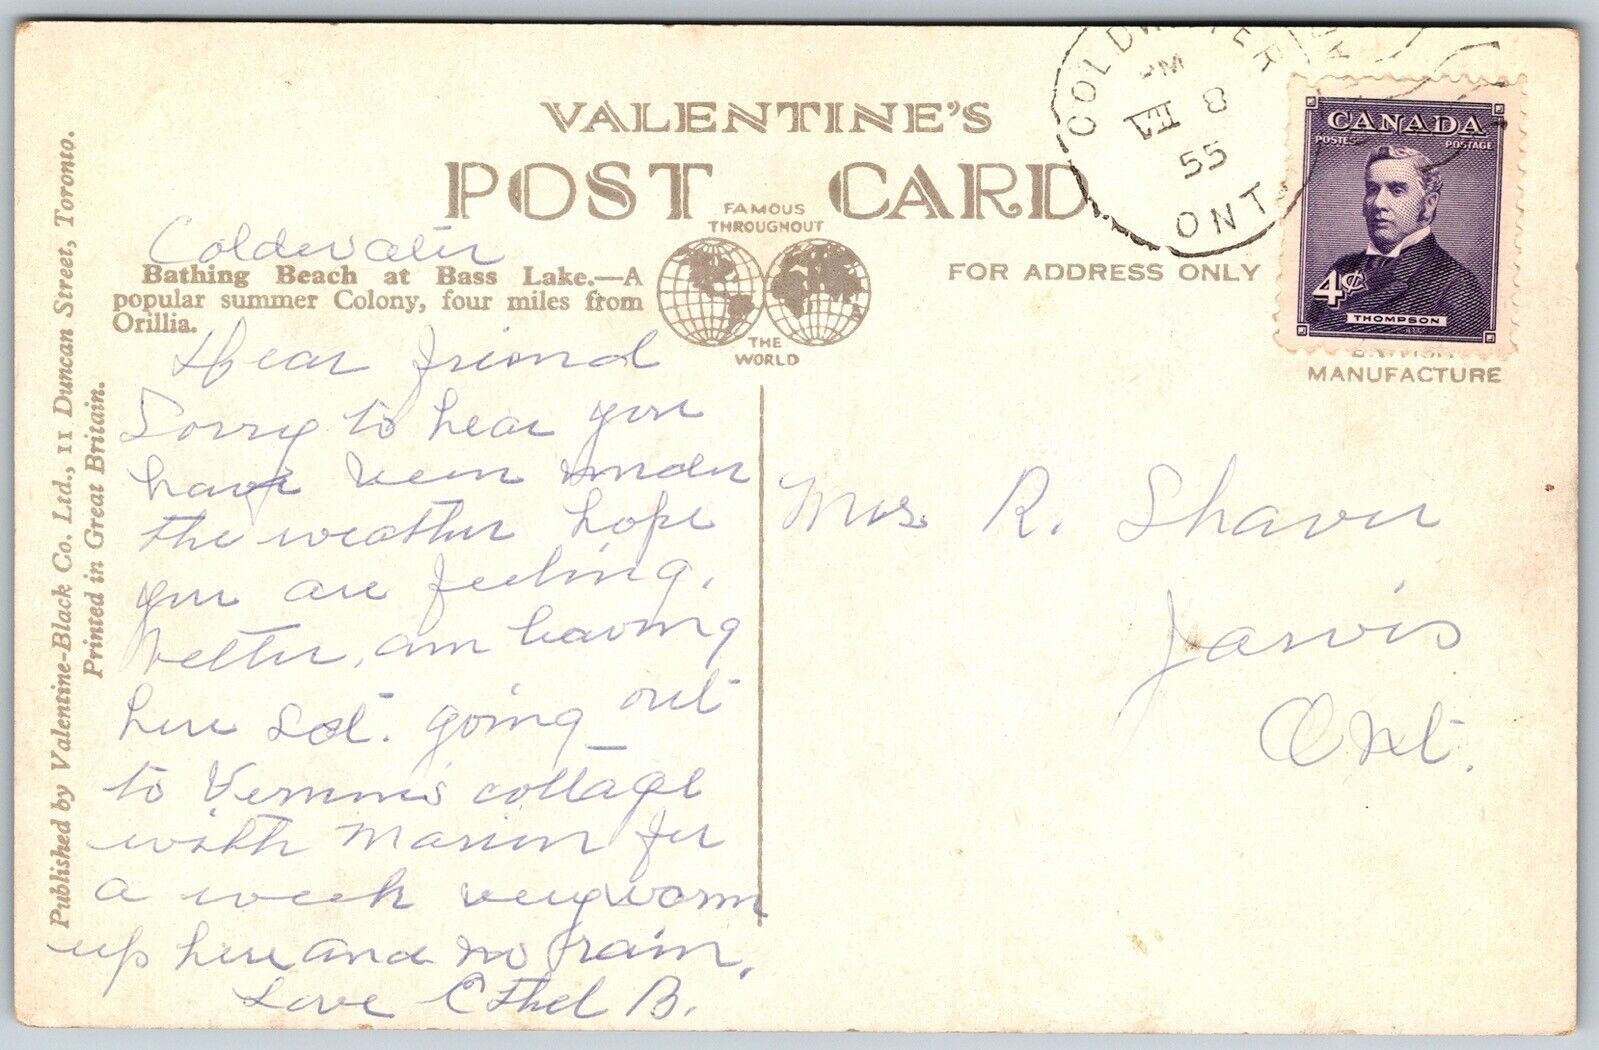 VALENTINE'S
POST CARD
FAMOUS
THROUGHOUT
THE
WORLD
FOR ADDRESS ONLY
MANUFACTURE
COLDWATER
PM
8
55
ONT
CANADA
POSTES POSTAGE
4¢
THOMPSON
Published by Valentine-Black Co. Ltd., 11 Duncan Street, Toronto.
Printed in Great Britain.
Coldwater
Bathing Beach at Bass Lake.—A
popular summer Colony, four miles from
Orillia.
Dear Friend
Sorry to hear you
have been under
the weather hope
you are feeling
better, am leaving
here Sat. going out
to cottage
with Marion for
a week very warm
up here and no rain.
Love Ethel B.
Mrs. R. Shaver
Jarvis
Ont.